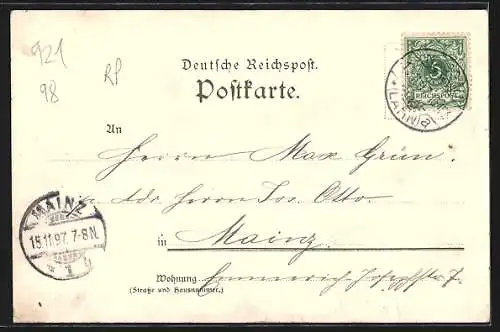 921
98
RP
Deutsche Reichspost.
Postkarte.
5
REICHSPOST
(LAHN) a
An
Herrn Max Grün.
Adr. Herrn Jos. Otto.
in Mainz.
Wohnung Emmerich-Josephstr. 7.
(Straße und Hausnummer.)
MAINZ
18.11.97. 7-8 N.